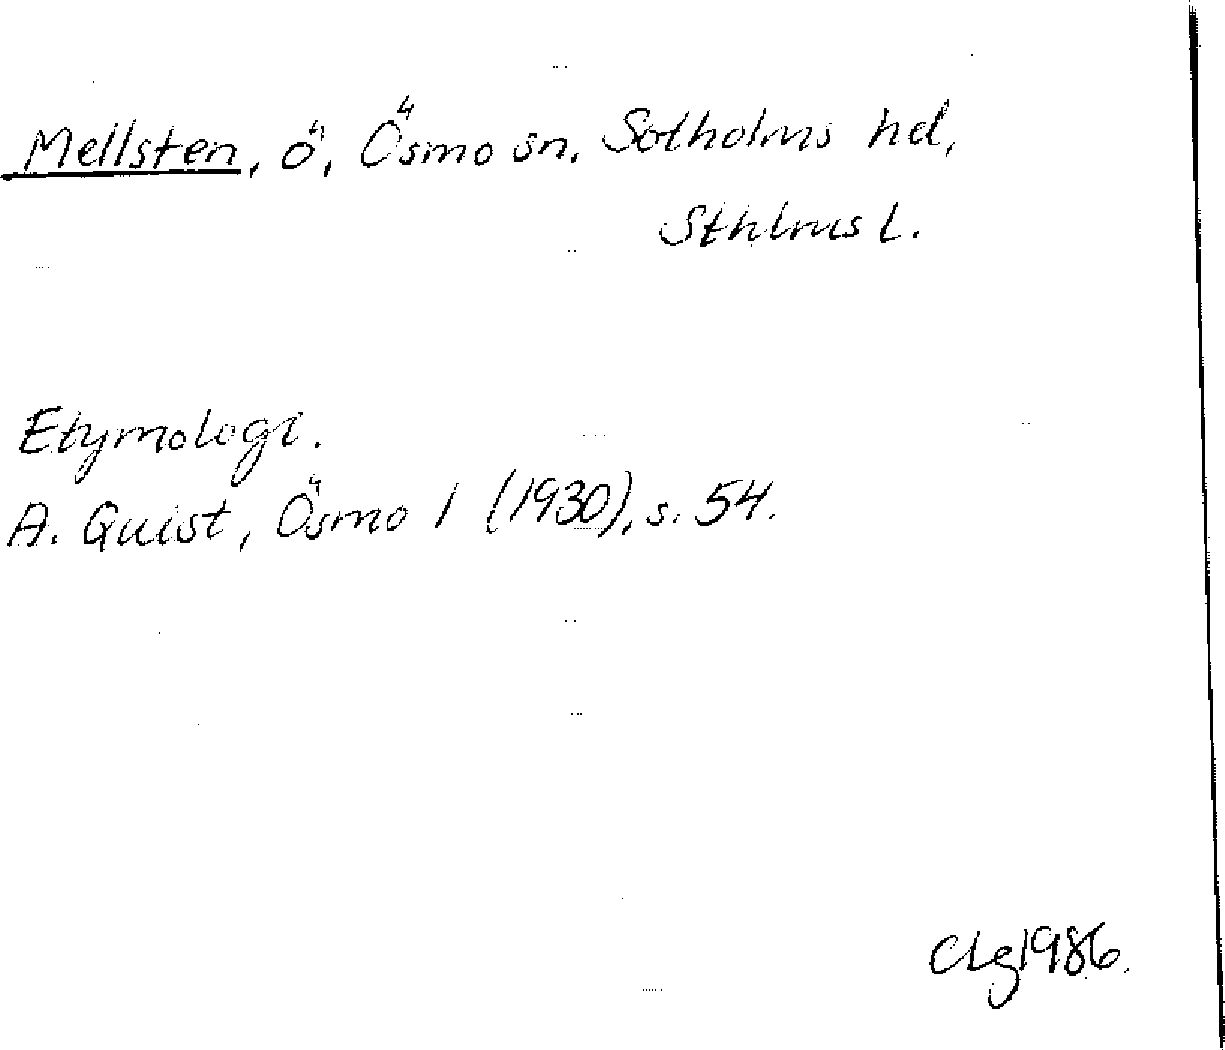 Mellsten, ö, Ösmo sn, Sotholms hd,
Sthlms l.
Etymologi.
A. Quist, Ösmo 1 (1930), s. 54.
CLg 1986.